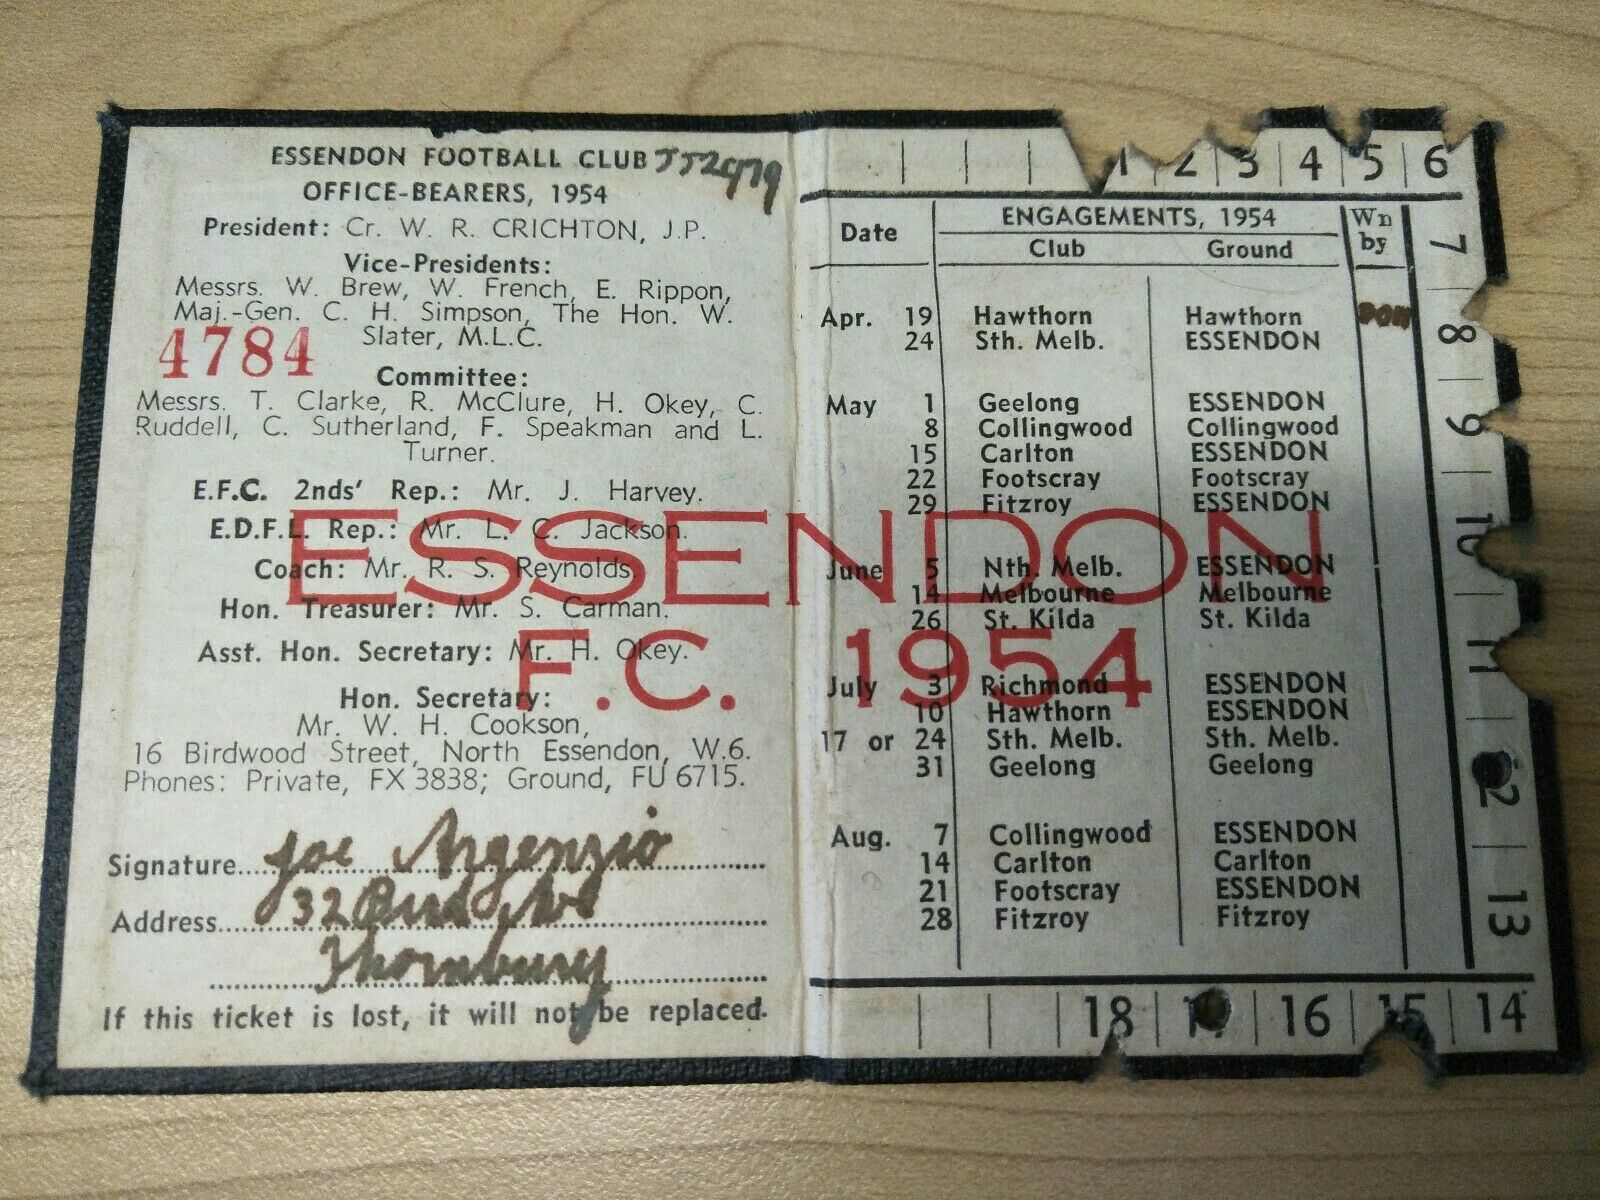 ESSENDON FOOTBALL CLUB
OFFICE-BEARERS, 1954
President: Cr. W. R. CRICHTON, J.P.
Vice-Presidents:
Messrs. W. Brew, W. French, E. Rippon,
Maj.-Gen. C. H. Simpson, The Hon. W.
Slater, M.L.C.
4784
Committee:
Messrs. T. Clarke, R. McClure, H. Okey, C.
Ruddell, C. Sutherland, F. Speakman and L.
Turner.
E.F.C. 2nds' Rep.: Mr. J. Harvey.
E.D.F.L. Rep.: Mr. L. C. Jackson.
Coach: Mr. R. S. Reynolds.
Hon. Treasurer: Mr. S. Carman.
Asst. Hon. Secretary: Mr. H. Okey.
Hon. Secretary:
Mr. W. H. Cookson,
16 Birdwood Street, North Essendon, W.6.
Phones: Private, FX 3838; Ground, FU 6715.
Signature Joe Argenzio
Address 32
Thornbury
If this ticket is lost, it will not be replaced.
ESSENDON
F.C. 1954
1 2 3 4 5 6
7
8
9
10
11
12
13
Date ENGAGEMENTS, 1954 Wn by
Club Ground
Apr. 19 Hawthorn Hawthorn
24 Sth. Melb. ESSENDON
May 1 Geelong ESSENDON
8 Collingwood Collingwood
15 Carlton ESSENDON
22 Footscray Footscray
29 Fitzroy ESSENDON
June 5 Nth. Melb. ESSENDON
14 Melbourne Melbourne
26 St. Kilda St. Kilda
July 3 Richmond ESSENDON
10 Hawthorn ESSENDON
17 or 24 Sth. Melb. Sth. Melb.
31 Geelong Geelong
Aug. 7 Collingwood ESSENDON
14 Carlton Carlton
21 Footscray ESSENDON
28 Fitzroy Fitzroy
18 17 16 15 14